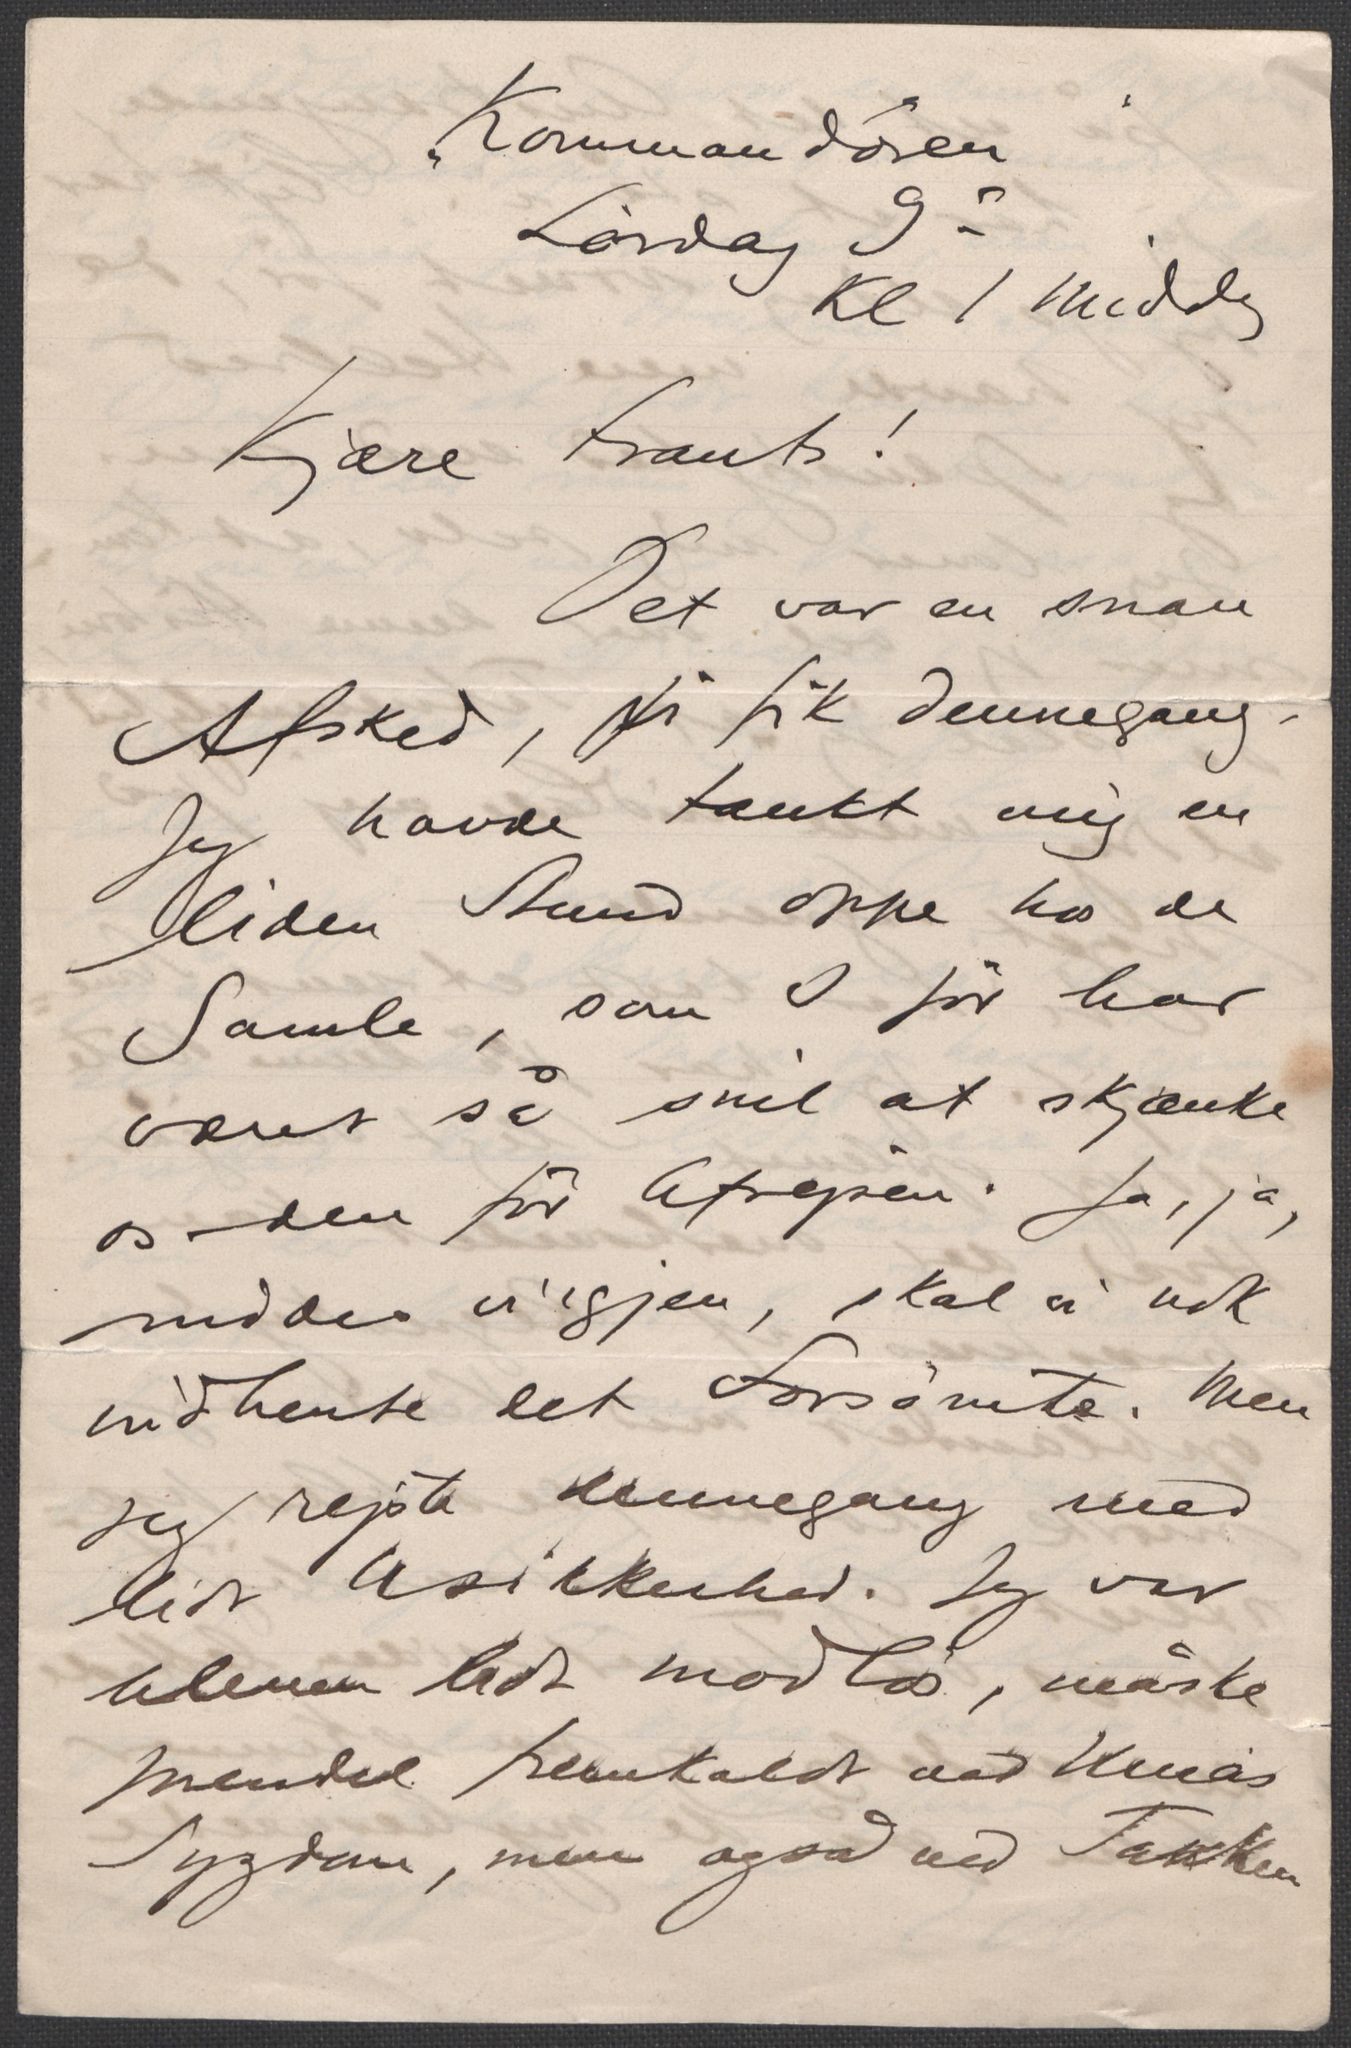 "Kommandören"
Lördag 9de
Kl 1 Middg
Kjære Frants!
Det var en snau
Afsked, vi fik dennegang.
Jeg havde tænkt mig en
liden Stund oppe hos de
Gamle, som I för har
været så snil at skjænke
os den för Afrejsen. Ja, ja,
mödes vi igjen, skal vi nok
indhente det Forsömte. Men
jeg rejste dennegang med
lidt Usikkerhed. Jeg var
lidt modlös, måske
fremkaldt ved Ninas
Sygdom, men også ved Tanken